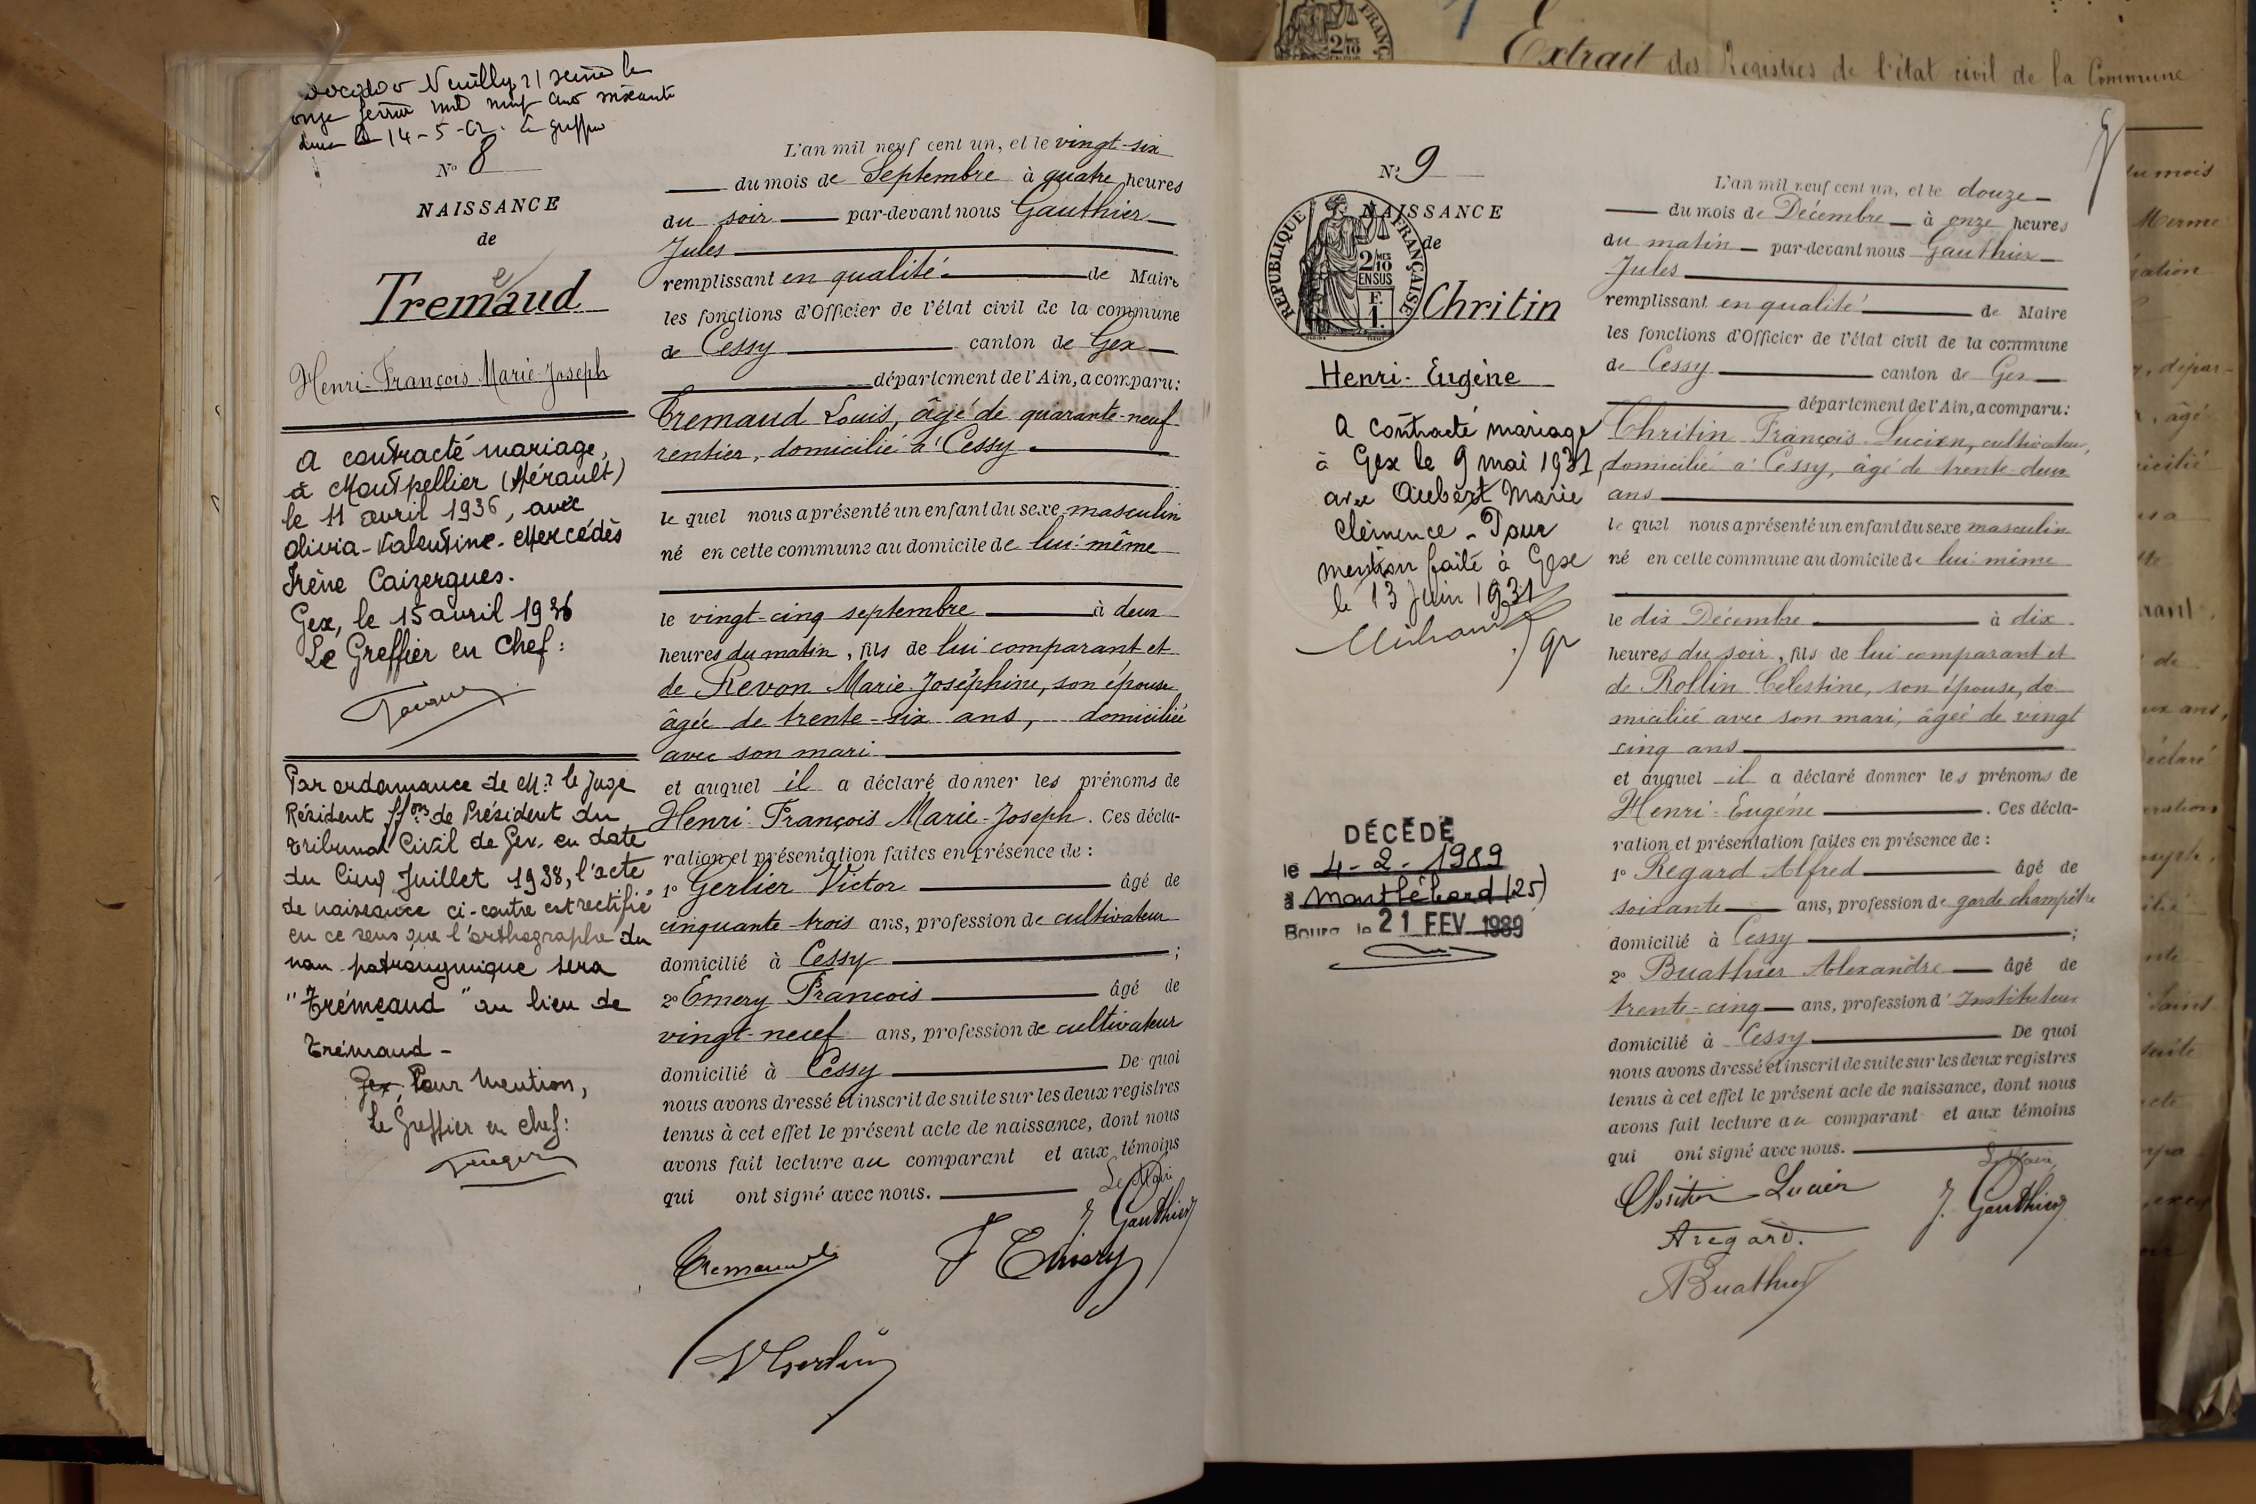 Neuilly s/ seine le
onze février mil neuf cent soixante
deux le 14-5-62. Le greffier
N° 8
NAISSANCE
de
Tremaud
e
Henri-François-Marie-Joseph
a contracté mariage,
à Montpellier (Hérault)
le 11 avril 1936, avec
Olivia-Valentine-Mercédès
Irène Caizergues.
Gex, le 15 avril 1936
Le Greffier en Chef:
Par ordonnance de Mr le Juge
Résident ffons de Président du
tribunal Civil de Gex en date
du Cinq Juillet 1938, l'acte
de naissance ci-contre est rectifié
en ce sens que l'orthographe du
nom patronymique sera
"Trémeaud" au lieu de
Trémaud -
Gex, Pour Mention,
Le Greffier en chef:
L'an mil neuf cent un, et le vingt-six
du mois de Septembre à quatre heures
du soir par-devant nous Gauthier
Jules
remplissant en qualité de Maire
les fonctions d'Officier de l'état civil de la commune
de Cessy canton de Gex
département de l'Ain, a comparu:
Tremaud Louis, âgé de quarante-neuf
rentier, domicilié à Cessy
le quel nous a présenté un enfant du sexe masculin
né en cette commune au domicile de lui-même
le vingt-cinq septembre à deux
heures du matin, fils de lui comparant et
de Revon Marie-Joséphine, son épouse
âgée de trente-six ans, domiciliée
avec son mari
et auquel il a déclaré donner les prénoms de
Henri-François Marie-Joseph. Ces décla-
ration et présentation faites en présence de:
1° Gerlier Victor âgé de
cinquante-trois ans, profession de cultivateur
domicilié à Cessy;
2° Emery Francois âgé de
vingt-neuf ans, profession de cultivateur
domicilié à Cessy De quoi
nous avons dressé et inscrit de suite sur les deux registres
tenus à cet effet le présent acte de naissance, dont nous
avons fait lecture au comparant et aux témoins
qui ont signé avec nous. Le Maire
J. Gauthier
Tremaud F Emery
V Gerlier
N° 9
NAISSANCE
de
REPUBLIQUE FRANÇAISE
2/10
MES
EN SUS
F.
1.
Chritin
Henri-Eugène
a contracté mariage
à Gex le 9 mai 1931,
avec Aubert Marie
Clémence - Pour
mention faite à Gex
le 13 Juin 1931
DÉCÉDÉ
le 4-2-1989
à Montlebond (25)
Bourg le 21 FEV 1989
L'an mil neuf cent un, et le douze
du mois de Décembre à onze heures
du matin par-devant nous Gauthier
Jules
remplissant en qualité de Maire
les fonctions d'Officier de l'état civil de la commune
de Cessy canton de Gex
département de l'Ain, a comparu:
Chritin François-Lucien, cultivateur,
domicilié à Cessy, âgé de trente-deux
ans
le quel nous a présenté un enfant du sexe masculin
né en cette commune au domicile de lui même
le dix Décembre à dix
heures du soir, fils de lui comparant et
de Rollin Célestine, son épouse, do
miciliée avec son mari, âgée de vingt
cinq ans
et auquel il a déclaré donner les prénoms de
Henri-Eugène. Ces décla-
ration et présentation faites en présence de:
1° Regard Alfred âgé de
soixante ans, profession de garde champêtre
domicilié à Cessy;
2° Buathier Alexandre âgé de
trente-cinq ans, profession d'Instituteur
domicilié à Cessy De quoi
nous avons dressé et inscrit de suite sur les deux registres
tenus à cet effet le présent acte de naissance, dont nous
avons fait lecture au comparant et aux témoins
qui ont signé avec nous.
Le Maire
Chritin Lucien J. Gauthier
A regard.
A Buathier
Extrait des Registres de l'état civil de la Commune